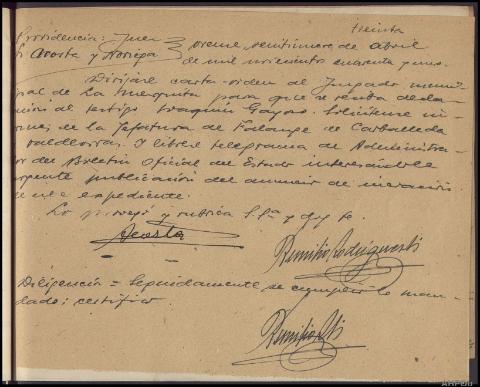 treinta
Providencia: Juez
Sr Acosta y Noriega
Orense veintinueve de abril
de mil novecientos cuarenta y uno.
Diríjase carta-orden al Juzgado muni
cipal de La Mezquita para que se reciba decla-
ración al testigo Joaquín Gayoso. Solicítese in-
forme de la Jefatura de Falange de Carballeda
Valdeorras. Y líbrese telegrama al Administra-
dor del Boletín Oficial del Estado interesándole
urgente publicación del anuncio de incoación
de este expediente.
Lo proveyó y rubrica S.Sª y doy fe.
Acosta
Remilio Rodriguez
Diligencia = Seguidamente se cumplió lo man-
dado; certifico
Remilio